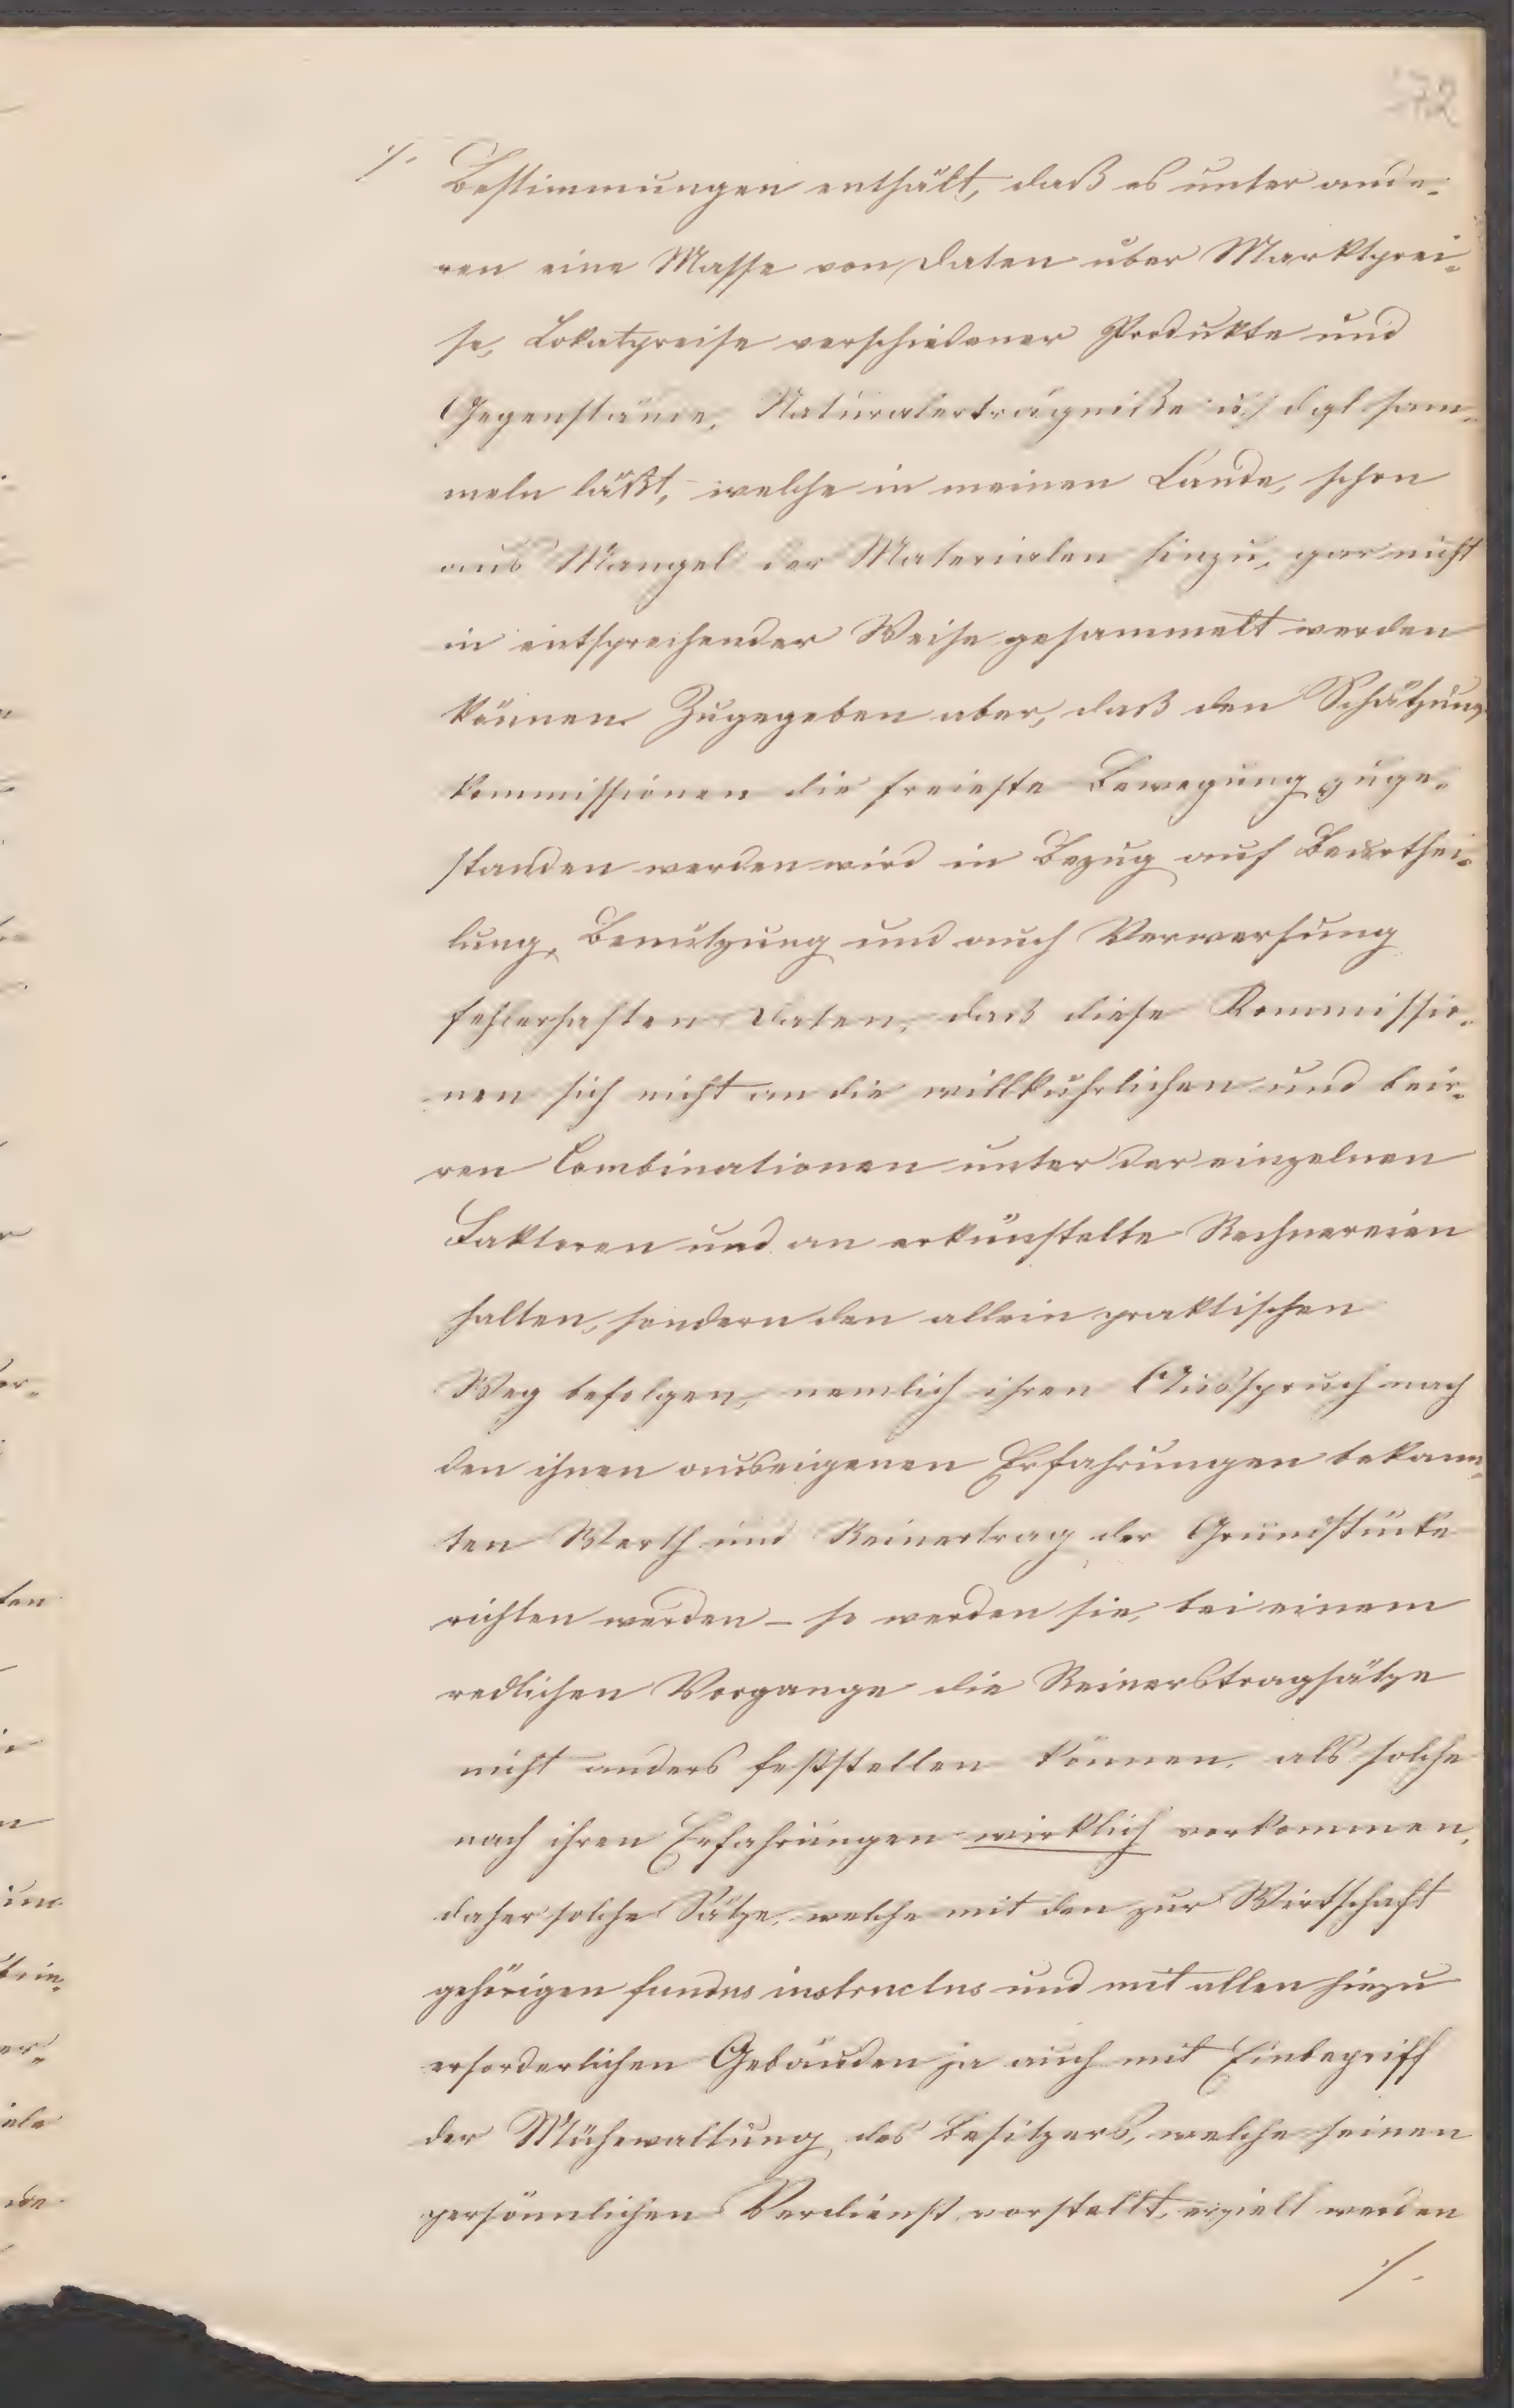 72
./. Bestimmungen enthält, daß es unter ande-
ren eine Masse von Daten über Marktprei-
se, Lokalpreise verschiedener Produkte und
Gegenstände, Naturalerträgniße u. dgl. sam-
meln läßt, welche in meinen Lande, schon
aus Mangel der Materialen hinzu, gar nicht
in entsprechender Weise gesammelt werden
können. Zugegeben aber, daß den Schätzungs
kommissionen die freieste Bewegung zuge-
standen werden wird in Bezug auf Beurthei-
lung, Benützung und auch Verwerfung
fehlerhaften Daten, daß diese Kommissio-
nen sich nicht an die willkuhrlichen und beir-
ren Combinationen unter der einzelnen
Faktoren und an erkünstelte Rechnereien
halten, sondern den allein praktischen
Weg befolgen, nemlich ihren Ausspruch nach
den ihnen aus eigenen Erfahrungen bekann-
ten Werth und Reinertrag der Grundstücke
richten werden – so werden sie, bei einem
redlichen Vorgange die Reinerstragsätze
nicht anders feststellen können, als solche
nach ihren Erfahrungen wirklich vorkommen,
daher solche Sätze, welche mit den zur Wirtschaft
gehörigen fundus instructus und mit allen hinzu
erforderlichen Gebäuden ja auch mit Einbegriff
der Mühewaltung des Besitzers, welche seinen
persönnlichen Verdienst vorstellt, erzielt werden
./.